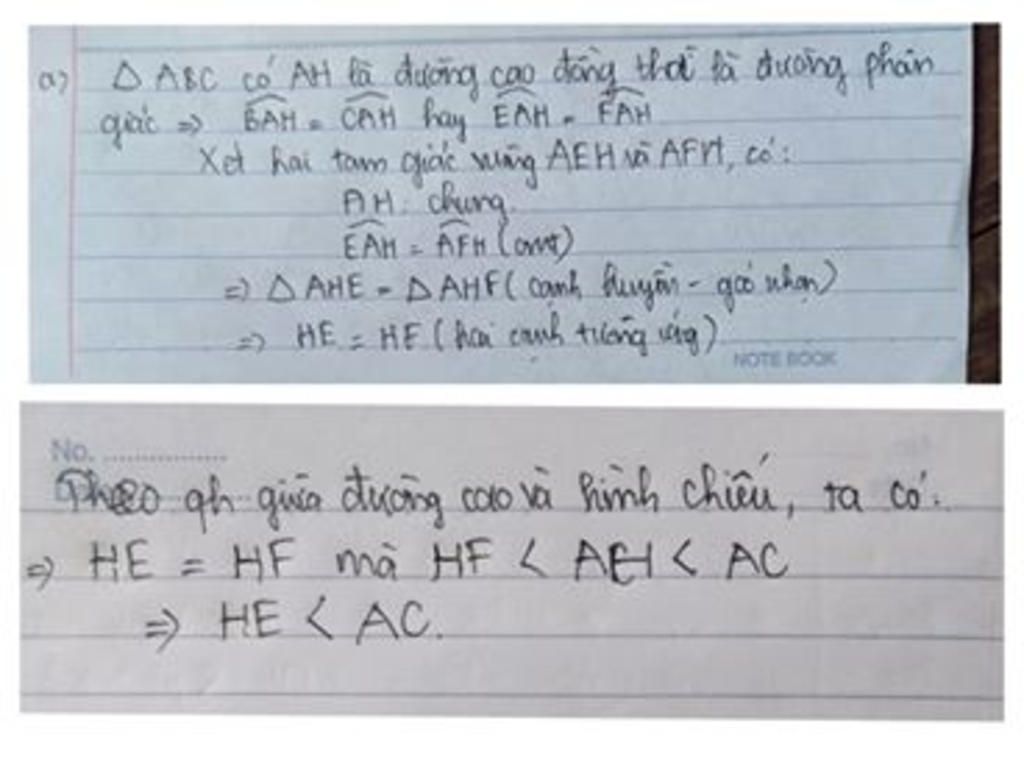 a) Δ ABC có AH là đường cao đồng thời là đường phân
giác => BAH = CAH hay EAH = FAH
Xét hai tam giác vuông AEH và AFH, có:
AH: chung
EAH = AFH (cmt)
=> Δ AHE = Δ AHF (cạnh huyền - góc nhọn)
=> HE = HF (hai cạnh tương ứng)
NOTE BOOK
No. ................
Theo qh giữa đường cao và hình chiếu, ta có:
=> HE = HF mà HF < AH < AC
=> HE < AC.